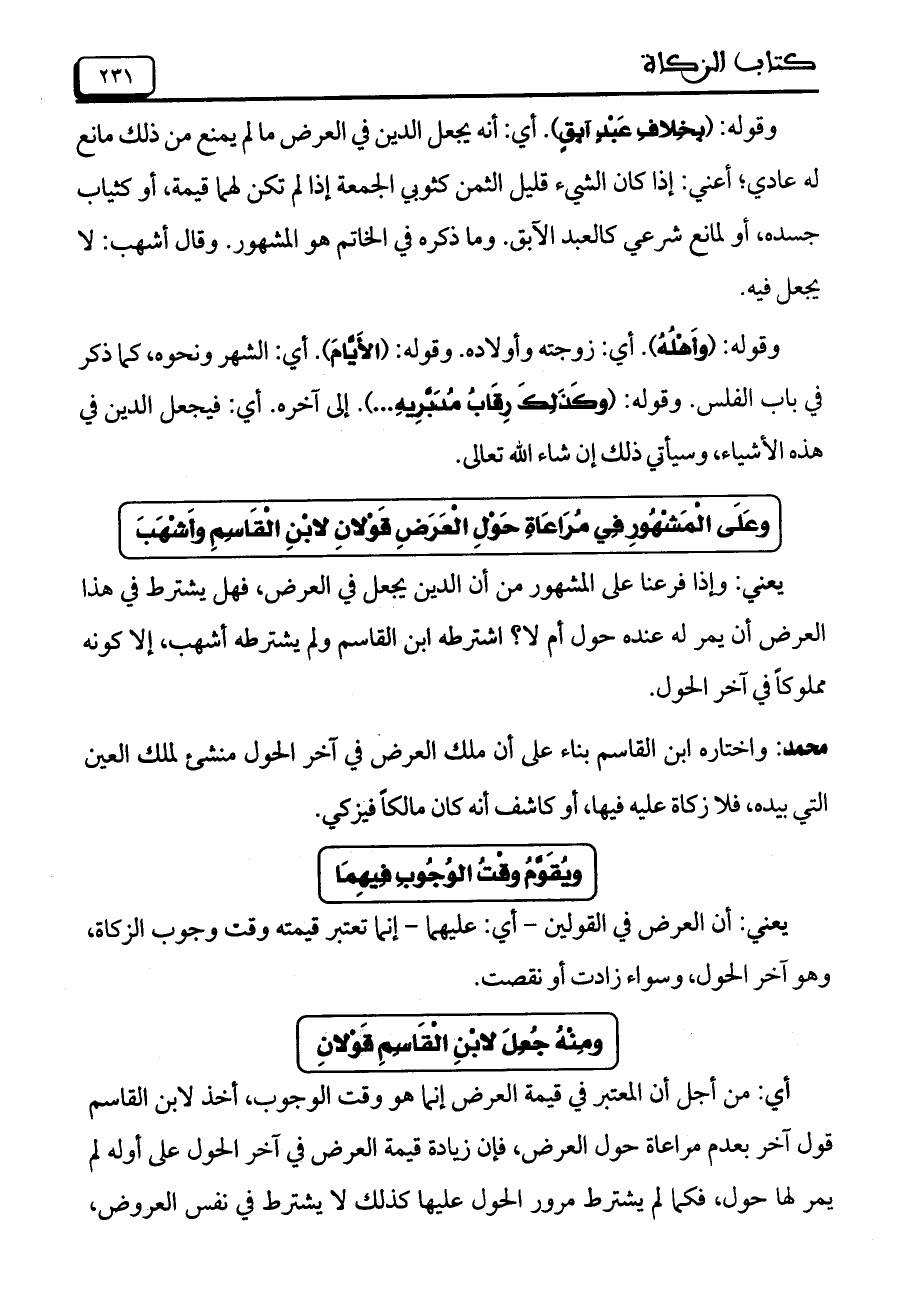 كتاب الزكاة
٢٣١
وقوله: (بِخِلافِ عَبْدٍ آبِقٍ). أي: أنه يجعل الدين في العرض ما لم يمنع من ذلك مانع
له عادي؛ أعني: إذا كان الشيء قليل الثمن كثوبي الجمعة إذا لم تكن لهما قيمة، أو كثياب
جسده، أو لمانع شرعي كالعبد الآبق. وما ذكره في الخاتم هو المشهور. وقال أشهب: لا
يجعل فيه.
وقوله: (وأَهْلُهُ). أي: زوجته وأولاده. وقوله: (الأَيَّامَ). أي: الشهر ونحوه، كما ذكر
في باب الفلس. وقوله: (وكَذَلِكَ رِقَابُ مُدَبَّرِيهِ...). إلى آخره. أي: فيجعل الدين في
هذه الأشياء، وسيأتي ذلك إن شاء الله تعالى.
وعَلَى الْمَشْهُورِ فِي مُرَاعَاةِ حَوْلِ الْعَرَضِ قَوْلانِ لابْنِ الْقَاسِمِ وأَشْهَبَ
يعني: وإذا فرعنا على المشهور من أن الدين يجعل في العرض، فهل يشترط في هذا
العرض أن يمر له عنده حول أم لا؟ اشترطه ابن القاسم ولم يشترطه أشهب، إلا كونه
مملوكاً في آخر الحول.
محمد: واختاره ابن القاسم بناء على أن ملك العرض في آخر الحول منشئ لملك العين
التي بيده، فلا زكاة عليه فيها، أو كاشف أنه كان مالكاً فيزكي.
ويُقَوَّمُ وقْتُ الوُجُوبِ فِيهِمَا
يعني: أن العرض في القولين – أي: عليهما – إنما تعتبر قيمته وقت وجوب الزكاة،
وهو آخر الحول، وسواء زادت أو نقصت.
ومِنْهُ جُعِلَ لابْنِ الْقَاسِمِ قَوْلانِ
أي: من أجل أن المعتبر في قيمة العرض إنما هو وقت الوجوب، أخذ لابن القاسم
قول آخر بعدم مراعاة حول العرض، فإن زيادة قيمة العرض في آخر الحول على أوله لم
يمر لها حول، فكما لم يشترط مرور الحول عليها كذلك لا يشترط في نفس العروض،